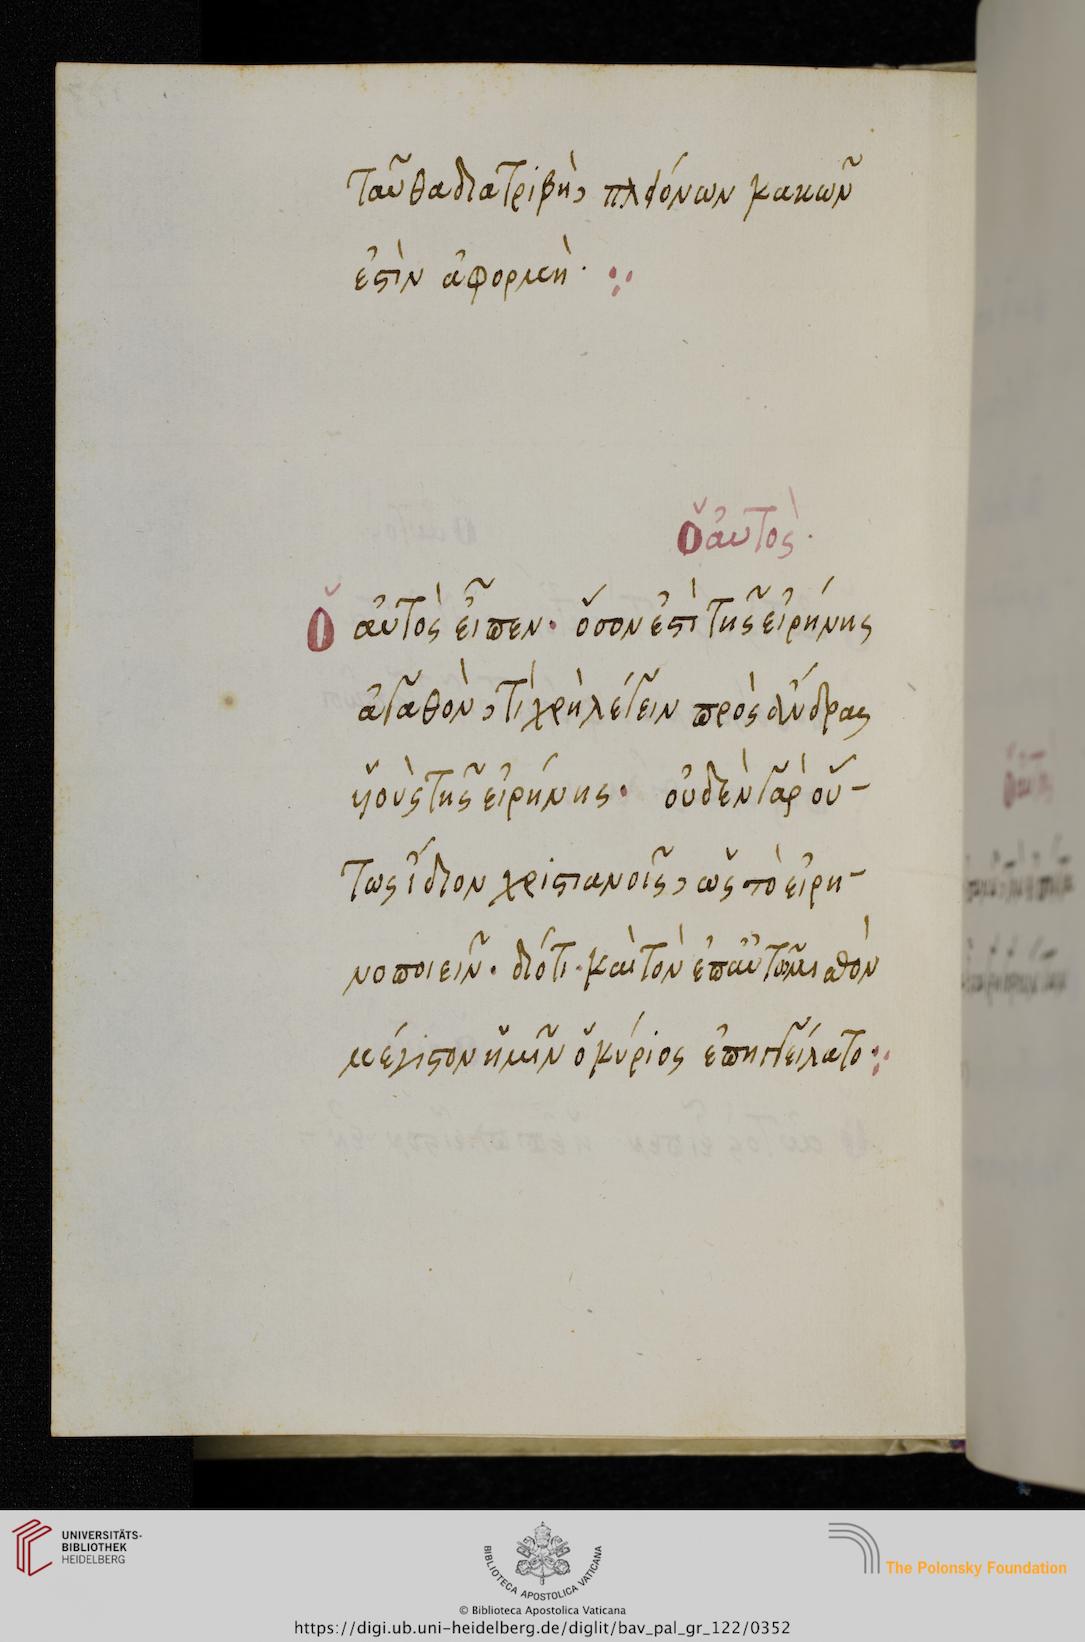 ταῦθα διατριβὴ, πλεόνων κακῶν
ἐστὶν ἀφορμὴ·
Ὁ αὐτὸς·
Ὁ αὐτὸς εἶπεν· ὅσον ἐστὶ τῆς εἰρήνης
ἀγαθὸν, τί χρὴ λέγειν πρὸς ἄνδρας
ὑιοὺς τῆς εἰρήνης· οὐδὲν γὰρ οὕ-
τως ἴδιον χριστιανοῖς, ὡς τὸ εἰρη-
νοποιεῖν· διότι· καὶ τὸν ἐπ αὐτῶ μισθὸν
μέγιστον ἡμῖν ὁ κύριος ἐπηγγείλατο
UNIVERSITÄTS-
BIBLIOTHEK
HEIDELBERG
BIBLIOTECA APOSTOLICA VATICANA
The Polonsky Foundation
© Biblioteca Apostolica Vaticana
https://digi.ub.uni-heidelberg.de/diglit/bav_pal_gr_122/0352